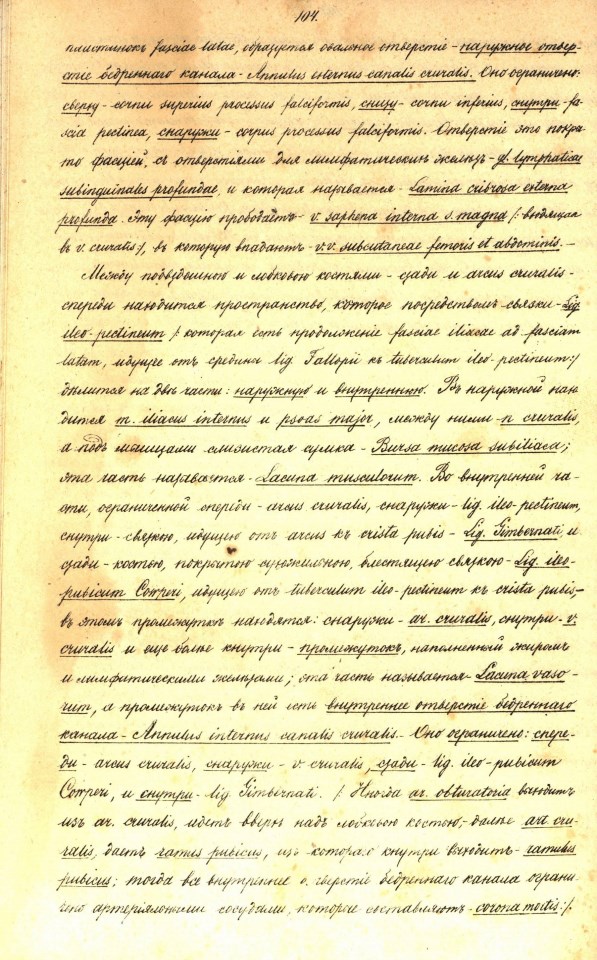 104.
пластинокъ fasciae latae, образуется овальное отверстіе - наружное отвер-
стіе бедреннаго канала - Annulus externus canalis cruralis. Оно ограничено:
сверху - cornu superius processus falciformis, снизу - cornu inferius, снутри - fa-
scia pectinea, снаружи - corpus processus falciformis. Отверстіе это покры-
то фасціей, съ отверстіями для лимфатическихъ железъ - gl. lymphaticae
subinguinales profundae, и которая называется - Lamina cribrosa externa
profunda. Эту фасцію прободаетъ - v. saphena interna s. magna /: входящая
въ v. cruralis :/, въ которую впадаютъ - v.v. subcutaneae femoris et abdominis. -
Между подвздошною и лобковою костями - сзади и arcus cruralis -
спереди находится пространство, которое посредствомъ связки - Lig.
ileo-pectineum /: которая есть продолженіе fasciae iliacae ad fasciam
latam, идущее отъ средины lig. Fallopii къ tuberculum ileo-pectineum :/
дѣлится на двѣ части: наружную и внутреннюю. Въ наружной нахо-
дится m. iliacus internus и psoas major, между ними - n. cruralis,
а подъ мышцами слизистая сумка - Bursa mucosa subiliaca;
эта часть называется - Lacuna musculorum. Во внутренней ча-
сти, ограниченной спереди - arcus cruralis, снаружи - lig. ileo-pectineum,
снутри - связкою, идущею отъ arcus къ crista pubis - Lig. Gimbernati, и
сзади - костью, покрытою сухожильною, блестящею связкою - Lig. ileo-
pubicum Cooperi, идущею отъ tuberculum ileo-pectineum къ crista pubis, -
въ этомъ промежуткѣ находятся: снаружи - ar. cruralis, снутри - v.
cruralis и еще болѣе кнутри - промежутокъ, наполненный жиромъ
и лимфатическими железами; эта часть называется - Lacuna vaso-
rum, а промежутокъ въ ней есть внутреннее отверстіе бедреннаго
канала - Annulus internus canalis cruralis. - Оно ограничено: спере-
ди - arcus cruralis, снаружи - v. cruralis, сзади - lig. ileo-pubicum
Cooperi, и снутри - lig. Gimbernati. /: Иногда ar. obturatoria выходитъ
изъ ar. cruralis, идетъ вверхъ надъ лобковою костью, - далѣе art. cru-
ralis, даетъ ramus pubicus, изъ котораго кнутри выходитъ - ramulus
pubicus; тогда все внутреннее отверстіе бедреннаго канала ограни-
чено артеріяльными сосудами, которые составляютъ - corona mortis :/.